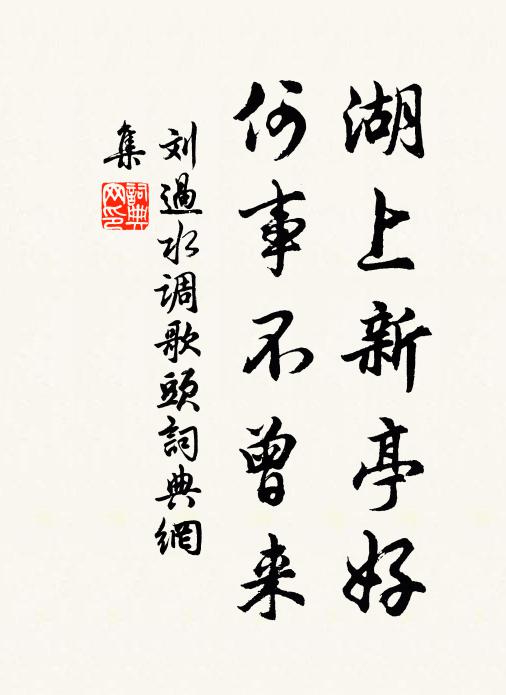 湖上新亭好
何事不曾来
刘過水调歌頭詞典網
集
詞典網印